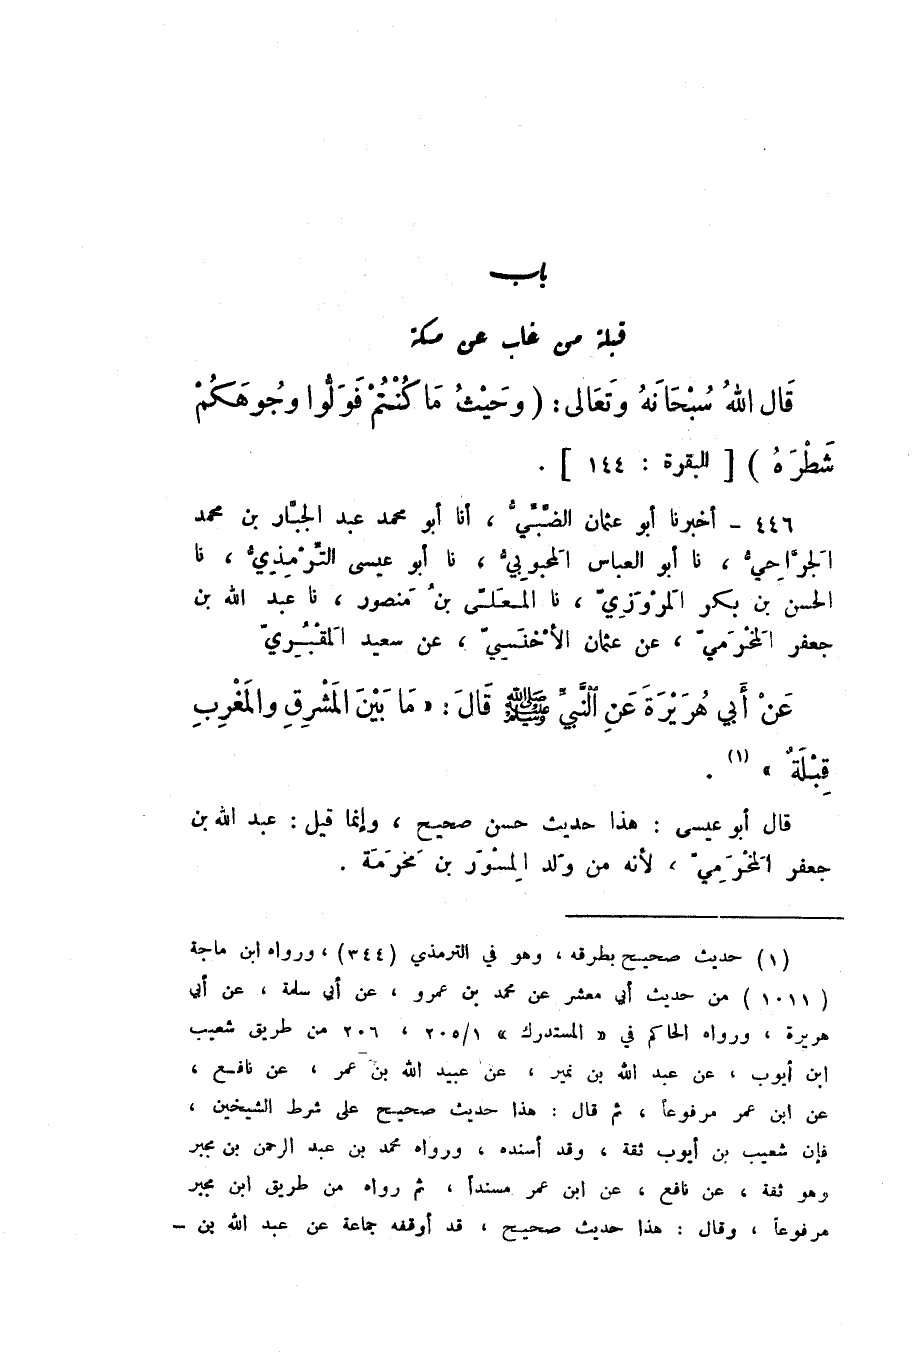 باب
قبلة من غاب عن مكة
قَال اللهُ سُبْحَانَهُ وَتَعَالى : ( وحَيْثُ مَا كُنْتُمْ فَوَلُّوا وجُوهَكُمْ
شَطْرَهُ ) [ البقرة : ١٤٤ ] .
٤٤٦ – أخبرنا أبو عثمان الضَّبِّيُّ ، أنا أبو محمد عبد الجبَّار بن محمد
الجرَّاحِيُّ ، نا أبو العباس المحبوبيُّ ، نا أبو عيسى التِّرْمِذِيُّ ، نا
الحسن بن بكر المَرْوَزِيّ ، نا المعلىّ بنُ مَنصور ، نا عبد الله بن
جعفر المَخْرَمِيّ ، عن عثمان الأخْنَسِيّ ، عن سعيد المَقْبُرِيّ
عَنْ أَبي هُرَيْرَةَ عَنِ النَّبيِّ ﷺ قَالَ : « مَا بَيْنَ المَشْرِقِ والمَغْرِبِ
قِبْلَةٌ » (١) .
قال أبو عيسى : هذا حديث حسن صحيح ، وإنما قيل : عبد الله بن
جعفر المَخْرَمِيّ ، لأنه من وَلد المِسْوَر بن مَخرَمَة .
(١) حديث صحيح بطرقه ، وهو في الترمذي (٣٤٤) ، ورواه ابن ماجة
( ١٠١١ ) من حديث أبي معشر عن محمد بن عمرو ، عن أبي سلمة ، عن أبي
هريرة ، ورواه الحاكم في « المستدرك » ٢٠٥/١ ، ٢٠٦ من طريق شعيب
ابن أيوب ، عن عبد الله بن نمير ، عن عبيد الله بن عمر ، عن نافع ،
عن ابن عمر مرفوعاً ، ثم قال : هذا حديث صحيح على شرط الشيخين ،
فإن شعيب بن أيوب ثقة ، وقد أسنده ، ورواه محمد بن عبد الرحمن بن مجبر
وهو ثقة ، عن نافع ، عن ابن عمر مسنداً ، ثم رواه من طريق ابن مجبر
مرفوعاً ، وقال : هذا حديث صحيح ، قد أوقفه جماعة عن عبد الله بن –